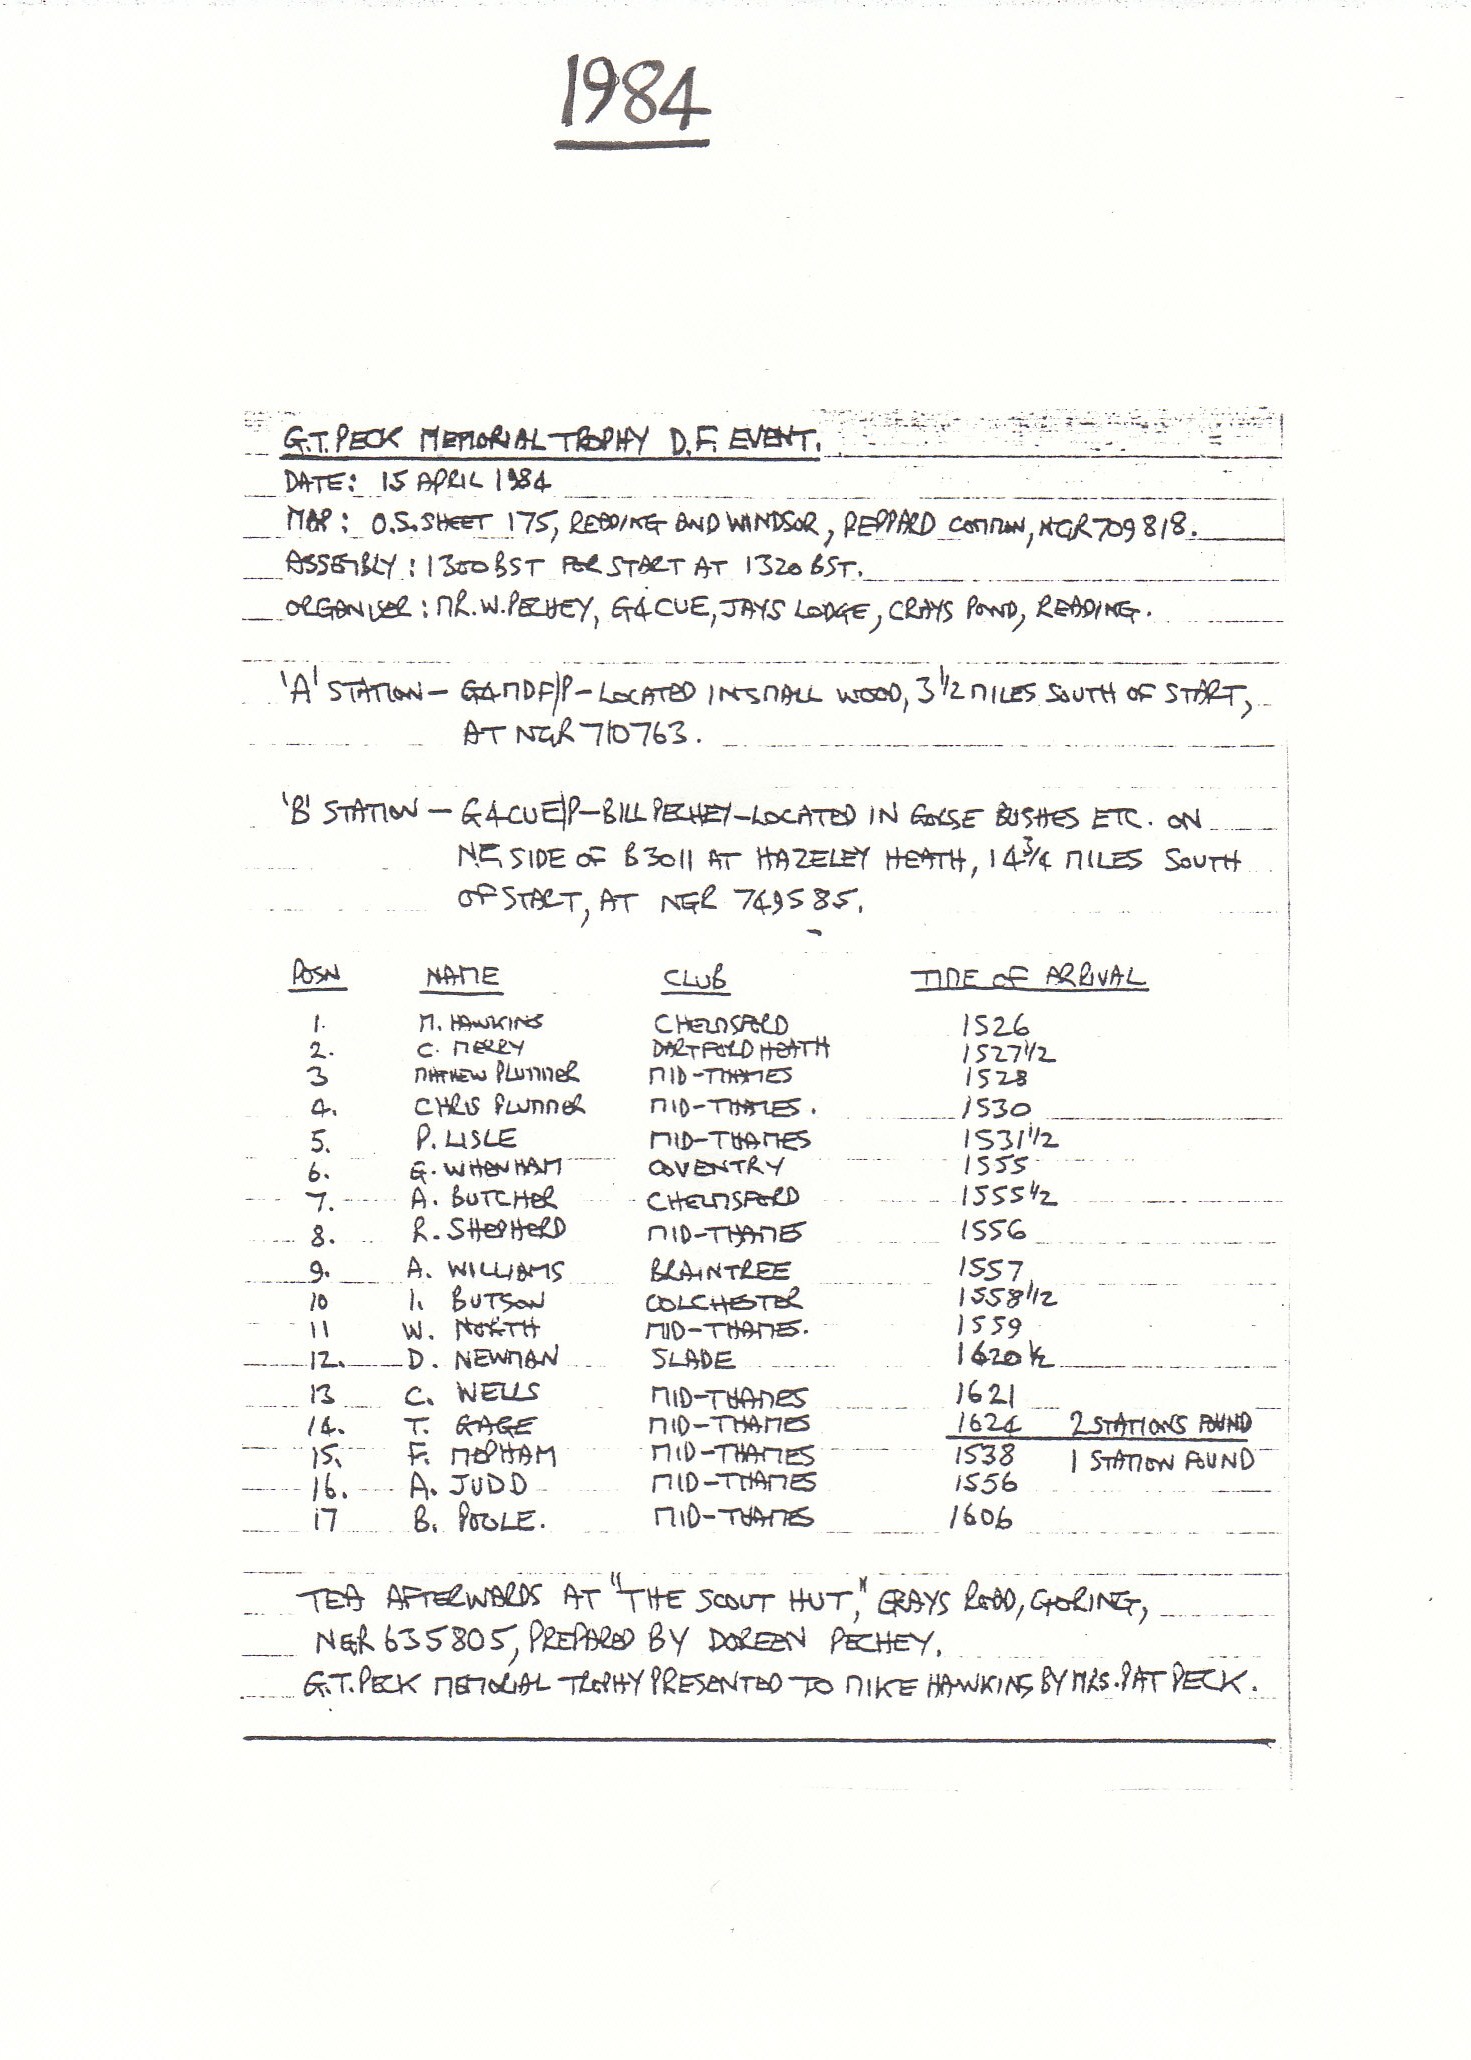 1984
G.T. PECK MEMORIAL TROPHY D.F. EVENT.
DATE: 15 APRIL 1984
MAP: O.S. SHEET 175, READING AND WINDSOR, PEPPARD COMMON, NGR 709818.
ASSEMBLY: 1300 BST FOR START AT 1320 BST.
ORGANISER: MR. W. PECHEY, G4CUE, JAYS LODGE, CRAYS POND, READING.
'A' STATION - G4MDF/P - LOCATED IN SMALL WOOD, 3 1/2 MILES SOUTH OF START,
AT NGR 710763.
'B' STATION - G4CUE/P - BILL PECHEY - LOCATED IN GORSE BUSHES ETC. ON
N.E. SIDE OF B3011 AT HAZELEY HEATH, 14 3/4 MILES SOUTH
OF START, AT NGR 749585.
POSN NAME CLUB TIME OF ARRIVAL
1. M. HAWKINS CHELMSFORD 1526
2. C. MERRY DARTFORD HEATH 1527 1/2
3 MATHEW PLUMMER MID-THAMES 1528
4. CHRIS PLUMMER MID-THAMES. 1530
5. P. LISLE MID-THAMES 1531 1/2
6. G. WHENHAM COVENTRY 1555
7. A. BUTCHER CHELMSFORD 1555 1/2
8. R. SHEPHERD MID-THAMES 1556
9. A. WILLIAMS BRAINTREE 1557
10 I. BUTSON COLCHESTER 1558 1/2
11 W. NORTH MID-THAMES. 1559
12. D. NEWMAN SLADE 1620 1/2
13 C. WELLS MID-THAMES 1621
14. T. GAGE MID-THAMES 1624 2 STATIONS FOUND
15. F. MEPHAM MID-THAMES 1538 1 STATION FOUND
16. A. JUDD MID-THAMES 1556
17 B. POOLE. MID-THAMES 1606
TEA AFTERWARDS AT "THE SCOUT HUT," GRAYS ROAD, GORING,
NGR 635805, PREPARED BY DOREEN PECHEY.
G.T. PECK MEMORIAL TROPHY PRESENTED TO MIKE HAWKINS BY MRS. PAT PECK.